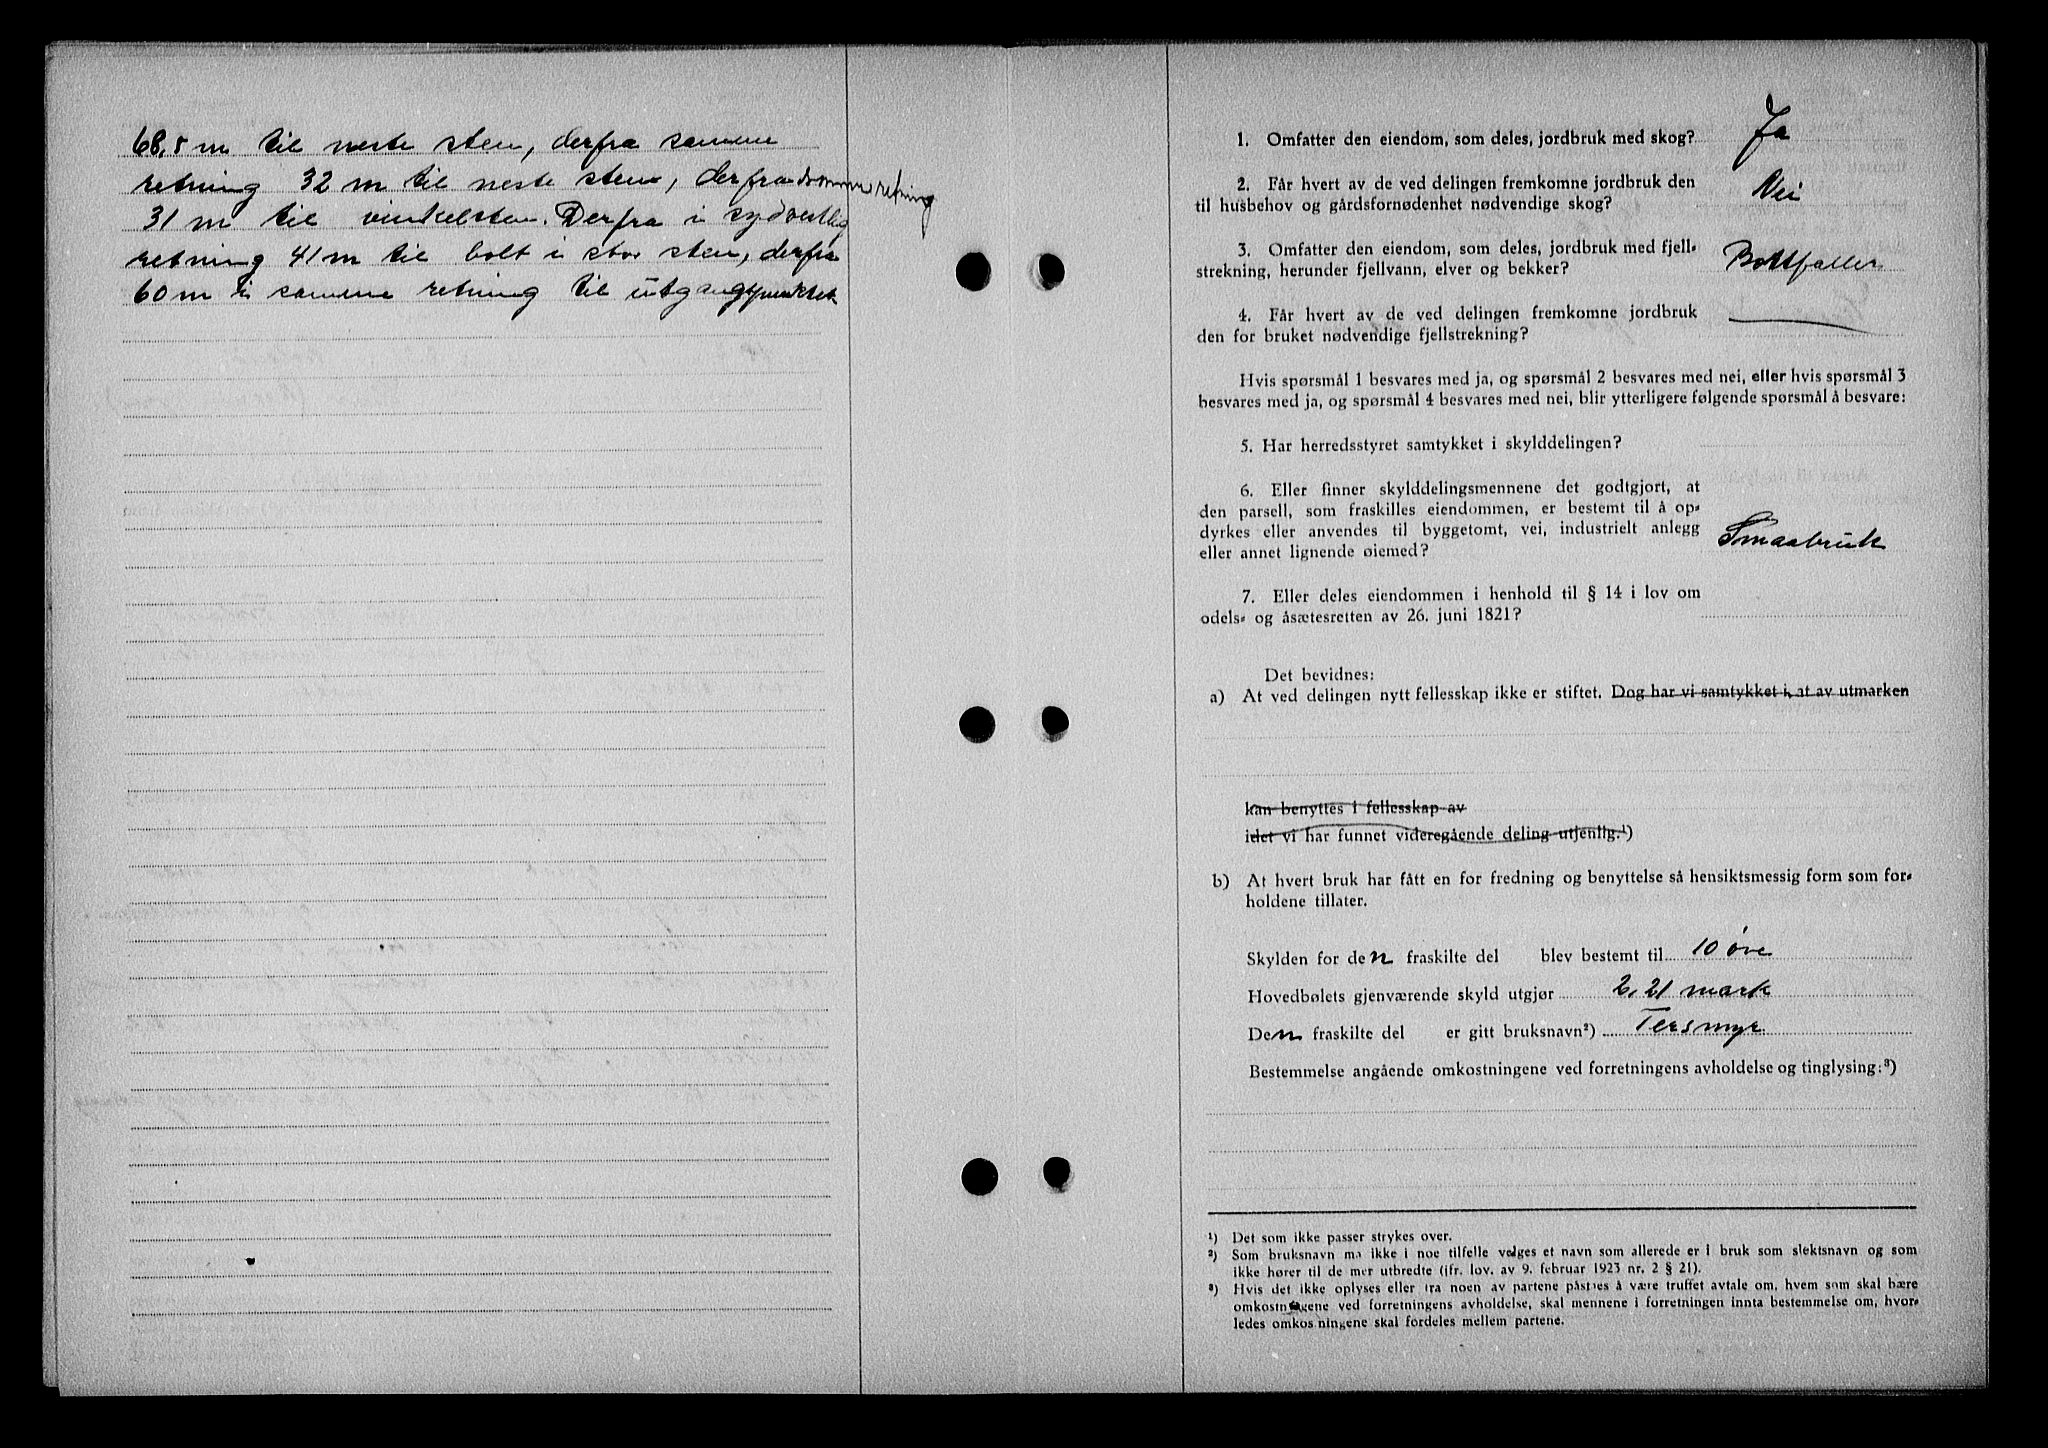 68,5 m til neste sten, derfra samme
retning 32 m til neste sten, derfra samme retning
31 m til vinkelsten. Derfra i sydvestlig
retning 41 m til bolt i stor sten, derfra
60 m i samme retning til utgangspunktet
1. Omfatter den eiendom, som deles, jordbruk med skog? Ja
2. Får hvert av de ved delingen fremkomne jordbruk den
til husbehov og gårdsfornødenhet nødvendige skog? Nei
3. Omfatter den eiendom, som deles, jordbruk med fjell-
strekning, herunder fjellvann, elver og bekker? Bortfaller
4. Får hvert av de ved delingen fremkomne jordbruk
den for bruket nødvendige fjellstrekning?
Hvis spørsmål 1 besvares med ja, og spørsmål 2 besvares med nei, eller hvis spørsmål 3
besvares med ja, og spørsmål 4 besvares med nei, blir ytterligere følgende spørsmål å besvare:
5. Har herredsstyret samtykket i skylddelingen?
6. Eller finner skylddelingsmennene det godtgjort, at
den parsell, som fraskilles eiendommen, er bestemt til å op-
dyrkes eller anvendes til byggetomt, vei, industrielt anlegg
eller annet lignende øiemed? Smaabruk
7. Eller deles eiendommen i henhold til § 14 i lov om
odels- og åsætesretten av 26. juni 1821?
Det bevidnes:
a) At ved delingen nytt fellesskap ikke er stiftet. Dog har vi samtykket i, at av utmarken
kan benyttes i fellesskap av
idet vi har funnet videregående deling utjenlig.¹)
b) At hvert bruk har fått en for fredning og benyttelse så hensiktsmessig form som for-
holdene tillater.
Skylden for den fraskilte del blev bestemt til 10 øre
Hovedbølets gjenværende skyld utgjør 2,21 mark
Den fraskilte del er gitt bruksnavn²) Tersmyr
Bestemmelse angående omkostningene ved forretningens avholdelse og tinglysing:³)
¹) Det som ikke passer strykes over.
²) Som bruksnavn må ikke i noe tilfelle velges et navn som allerede er i bruk som slektsnavn og som
ikke hører til de mer utbredte (jfr. lov. av 9. februar 1923 nr. 2 § 21).
³) Hvis det ikke oplyses eller fra noen av partene påståes å være truffet avtale om, hvem som skal bære
omkostningene ved forretningens avholdelse, skal mennene i forretningen innta bestemmelse om, hvor-
ledes omkostningene skal fordeles mellem partene.